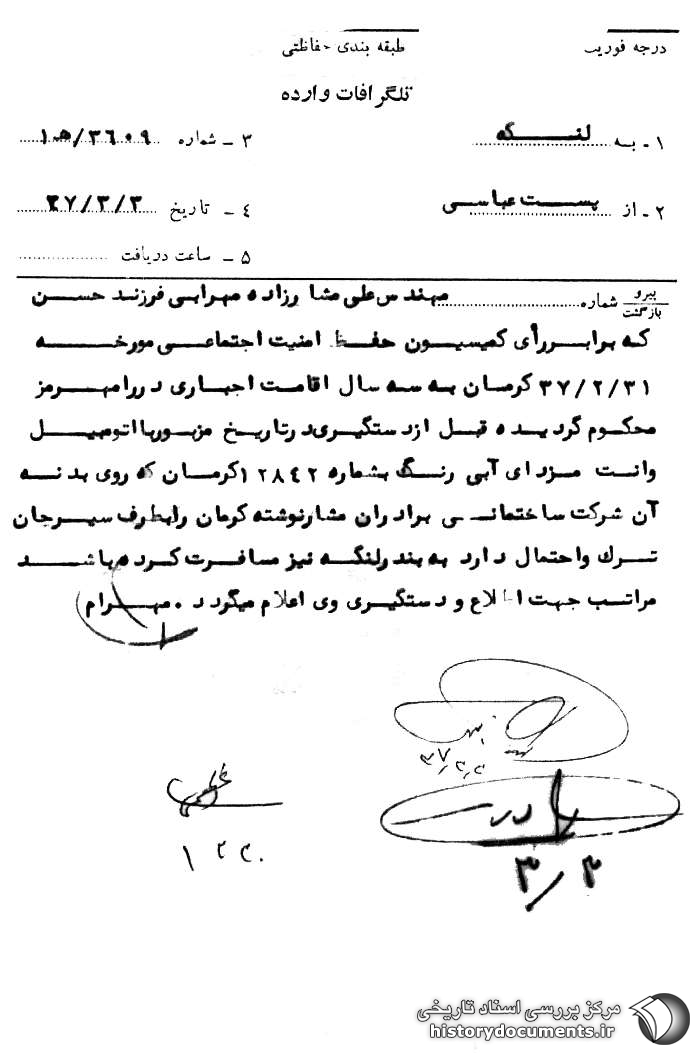 درجه فوریت
طبقه بندی حفاظتی
تلگرافات وارده
۱ - به لنگه
۳ - شماره ۱۰ه/۳۶۰۹
۲ - از پست عباسی
۴ - تاریخ ۳۷/۳/۳
۵ - ساعت دریافت
پیرو بازگشت شماره مهندس علی مشارزاده مهرابی فرزند حسن
که برابر رأی کمیسیون حفظ امنیت اجتماعی مورخه
۳۷/۲/۳۱ کرمان به سه سال اقامت اجباری در رامهرمز
محکوم گردیده قبل از دستگیری در تاریخ مزبور با اتومبیل
وانت مزدای آبی رنگ بشماره ۱۲۸۴۲ کرمان که روی بدنه
آن شرکت ساختمانی برادران مشار نوشته کرمان را بطرف سیرجان
ترك و احتمال دارد به بندر لنگه نیز مسافرت کرده باشد
مراتب جهت اطلاع و دستگیری وی اعلام میگردد . مهرام
۳۷/۳/۳
۳/۳
۱۲۲۰
مرکز بررسی اسناد تاریخی
historydocuments.ir